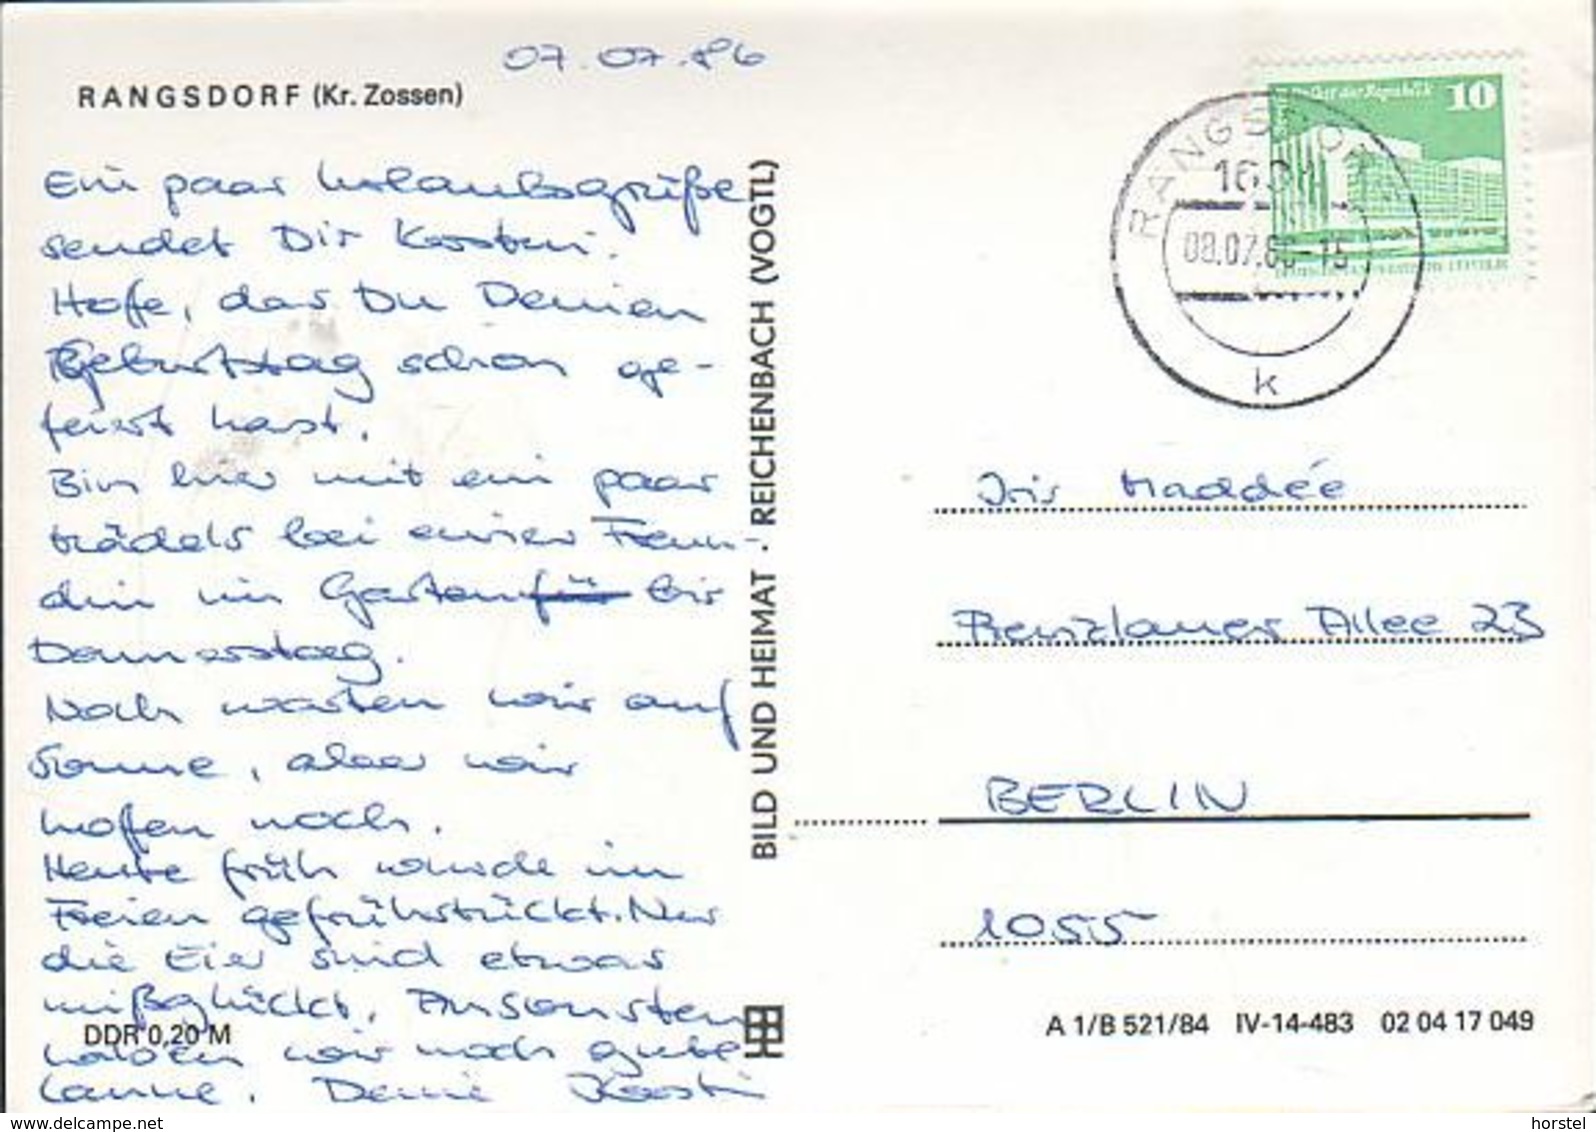 07.07.86
RANGSDORF (Kr. Zossen)
Ein paar Urlaubsgrüße
sendet Dir Kerstin.
Hoffe, das Du Deinen
Geburtstag schon ge-
feiert hast.
Bin hier mit ein paar
Mädels bei einer Freun-
din im Garten für bis
Donnerstag.
Noch warten wir auf
Sonne, aber wir
hoffen noch.
Heute früh wurde im
Freien gefrühstückt. Nur
die Eier sind etwas
mißglückt. Ansonsten
haben wir noch gute
Laune. Deine Kerstin
DDR 0,20 M
BILD UND HEIMAT · REICHENBACH (VOGTL)
10
der Republik
RANGSDORF
1631
08.07.86-15
k
Iris Maddée
Prenzlauer Allee 23
BERLIN
1055
A 1/B 521/84 IV-14-483 02 04 17 049
www.delcampe.net
horstel